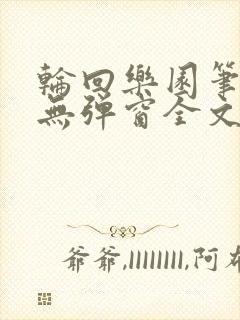 輪回樂園筆
無彈窗全文
爺爺,llllllll,阿布